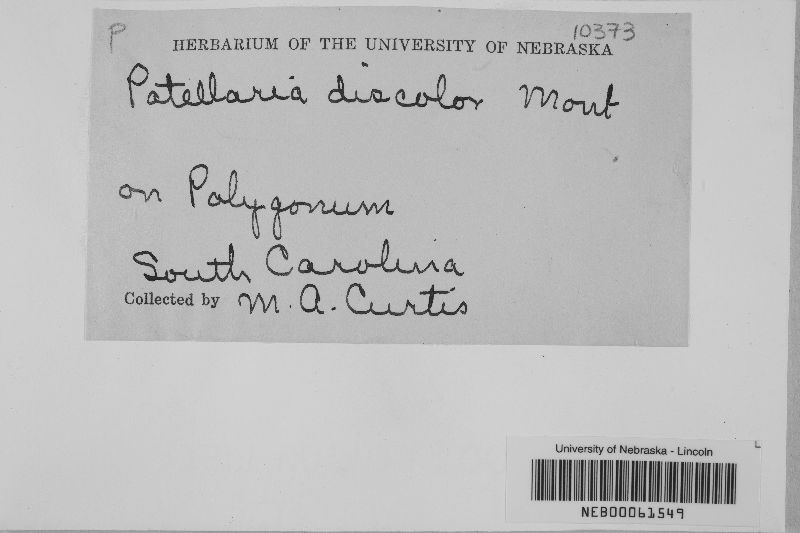 P
10373
HERBARIUM OF THE UNIVERSITY OF NEBRASKA
Patellaria discolor Mont
on Polygonum
South Carolina
Collected by M. A. Curtis
University of Nebraska - Lincoln
NEB00061549